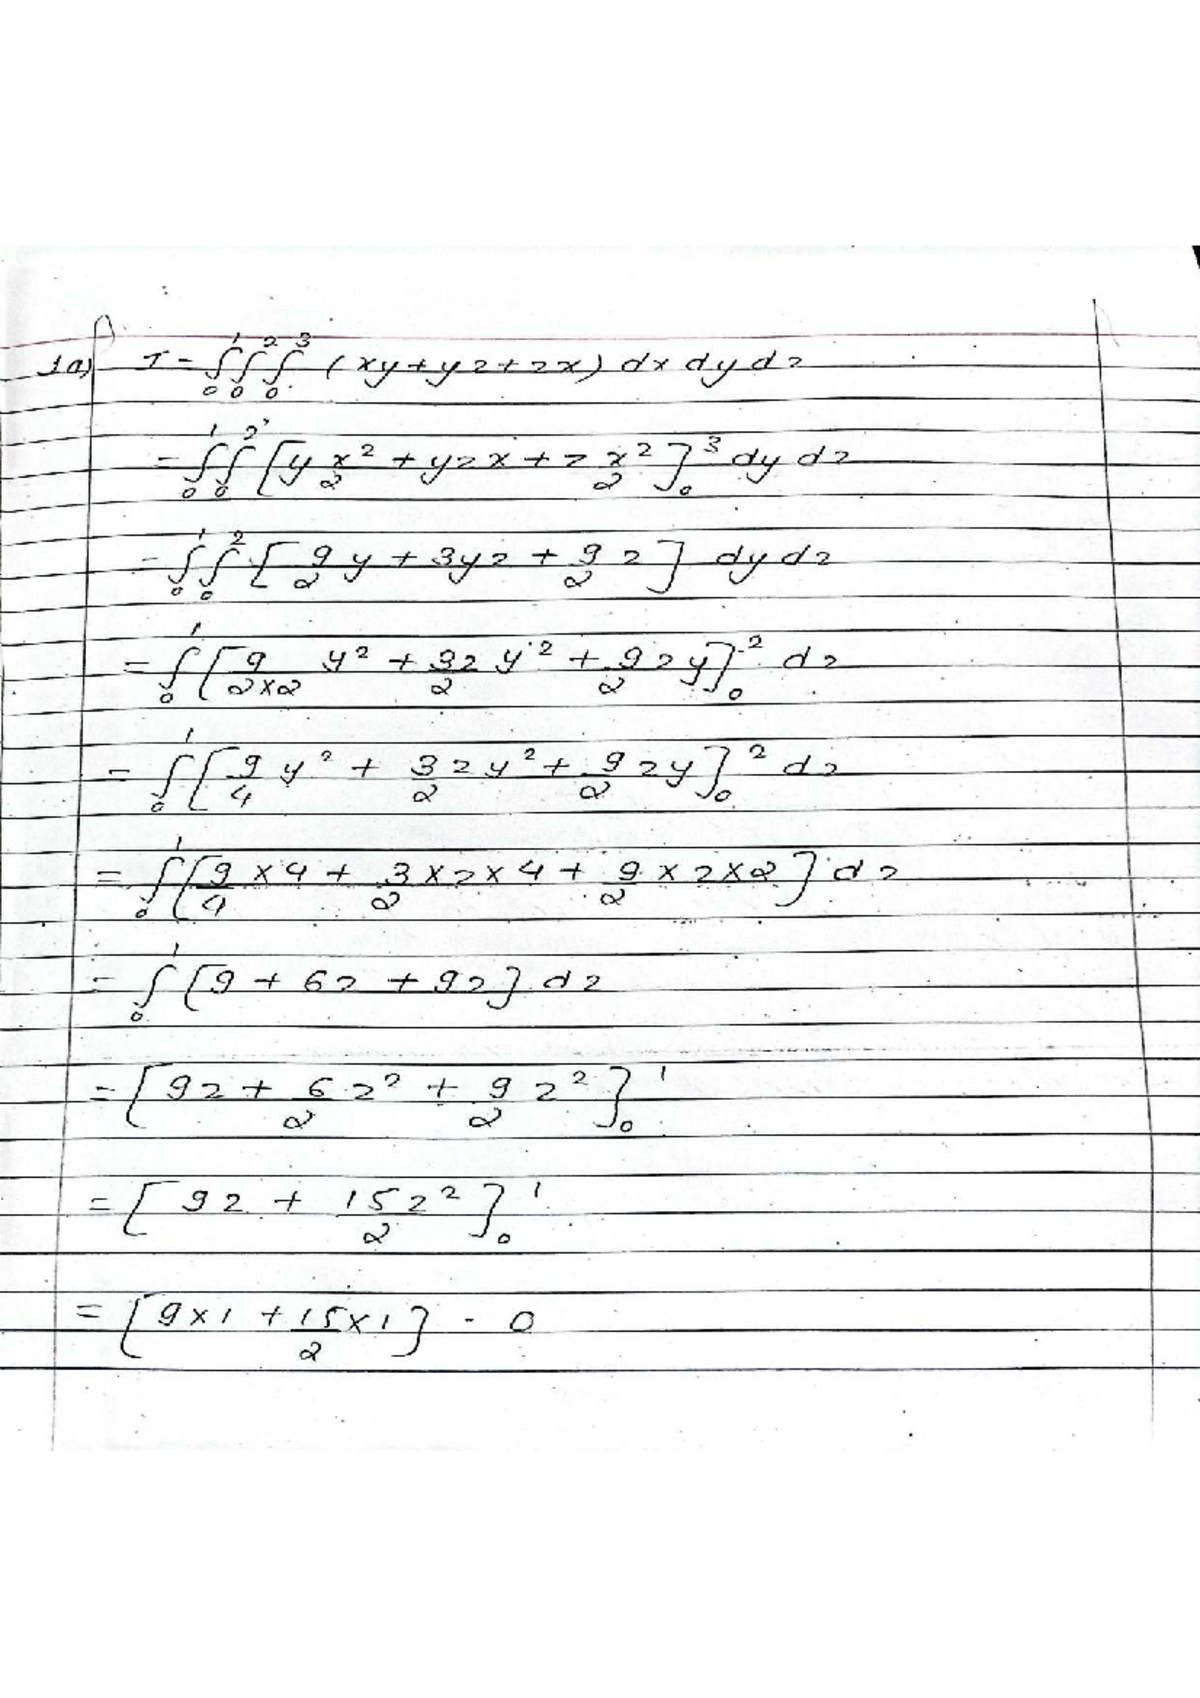 1a) I = ∫₀¹ ∫₀² ∫₀³ (xy + yz + zx) dx dy dz
= ∫₀¹ ∫₀² [y x²/2 + yzx + z x²/2]₀³ dy dz
= ∫₀¹ ∫₀² [9/2 y + 3yz + 9/2 z] dy dz
= ∫₀¹ [9/(2×2) y² + 3z/2 y² + 9/2 zy]₀² dz
= ∫₀¹ [9/4 y² + 3/2 zy² + 9/2 zy]₀² dz
= ∫₀¹ [9/4 × 4 + 3/2 × z × 4 + 9/2 × z × 2] dz
= ∫₀¹ [9 + 6z + 9z] dz
= [9z + 6/2 z² + 9/2 z²]₀¹
= [9z + 15z²/2]₀¹
= [9×1 + 15/2 ×1] - 0